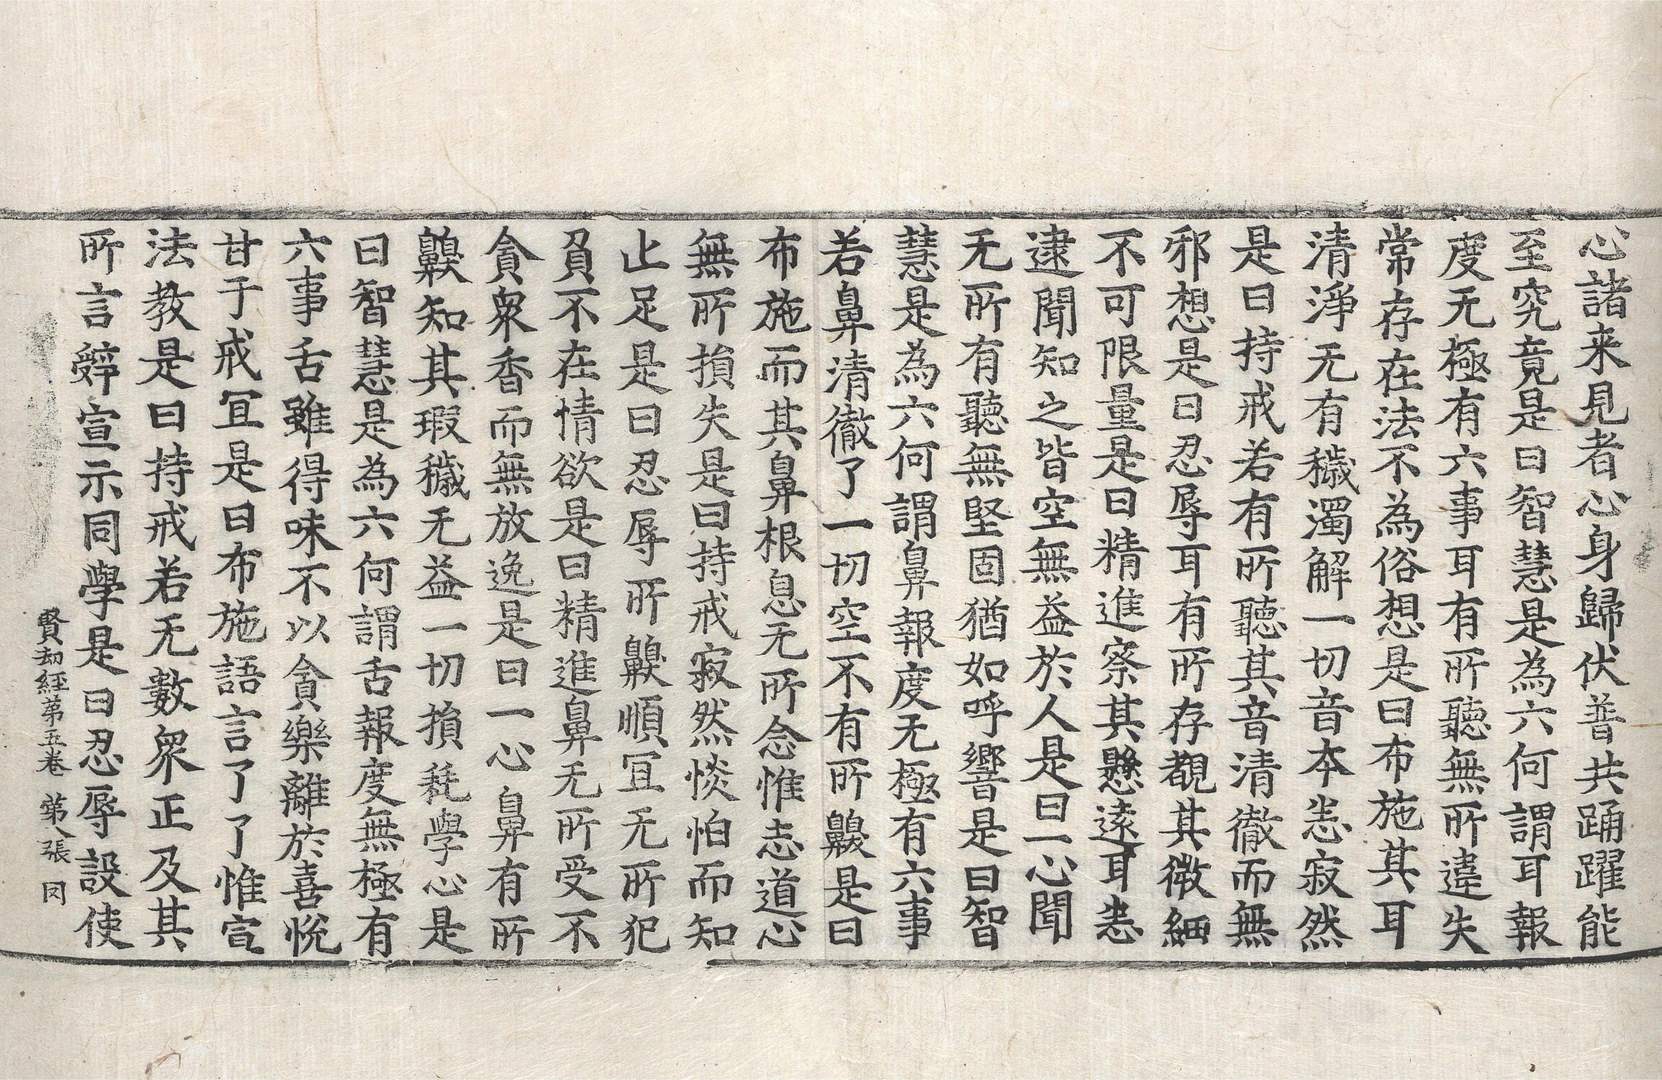 心諸来見者心身歸伏普共踊躍能
至究竟是曰智慧是為六何謂耳報
度无極有六事耳有所聽無所違失
常存在法不為俗想是曰布施其耳
清淨无有穢濁解一切音本恙寂然
是曰持戒若有所聽其音清徹而無
邪想是曰忍辱耳有所存覩其微細
不可限量是曰精進察其懸遠耳恙
逮聞知之皆空無益於人是曰一心聞
无所有聽無堅固猶如呼響是曰智
慧是為六何謂鼻報度无極有六事
若鼻清徹了一切空不有所齅是曰
布施而其鼻根息无所念惟志道心
無所損失是曰持戒寂然惔怕而知
止足是曰忍辱所齅順冝无所犯
負不在情欲是曰精進鼻无所受不
貪衆香而無放逸是曰一心鼻有所
齅知其瑕穢无益一切損耗學心是
曰智慧是為六何謂舌報度無極有
六事舌雖得味不以貪樂離於喜悅
甘于戒冝是曰布施語言了了惟宣
法教是曰持戒若无數衆正及其
所言辤宣示同學是曰忍辱設使
賢劫經第五卷 第八張 冈